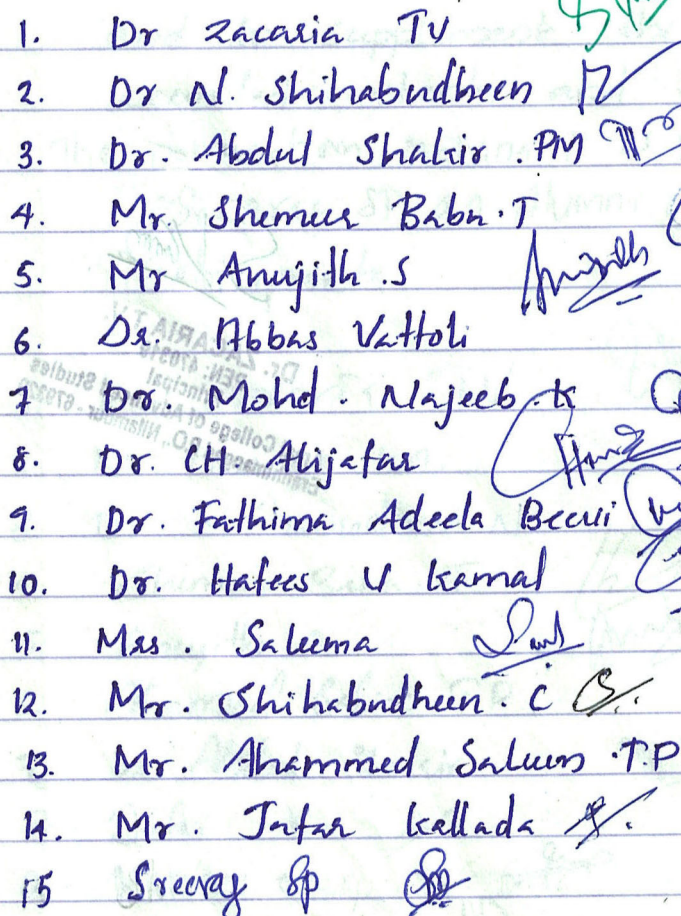 1. Dr Zacaria TV
2. Dr N. Shihabudheen
3. Dr. Abdul Shakir . PM
4. Mr. Shemeer Babu . T
5. Mr Anujith . S
6. Dr. Abbas Vattoli
7 Dr. Mohd . Najeeb . K
8. Dr. CH. Alijafar
9. Dr. Fathima Adeela Beevi
10. Dr. Hafees U Kamal
11. Mrs . Saleema
12. Mr. Shihabudheen . C
13. Mr. Ahammed Saleem . T.P
14. Mr. Jafar Kallada
15 Sreeraj Sp